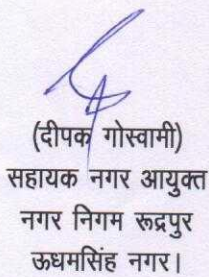 (दीपक गोस्वामी)
सहायक नगर आयुक्त
नगर निगम रूद्रपुर
ऊधमसिंह नगर।